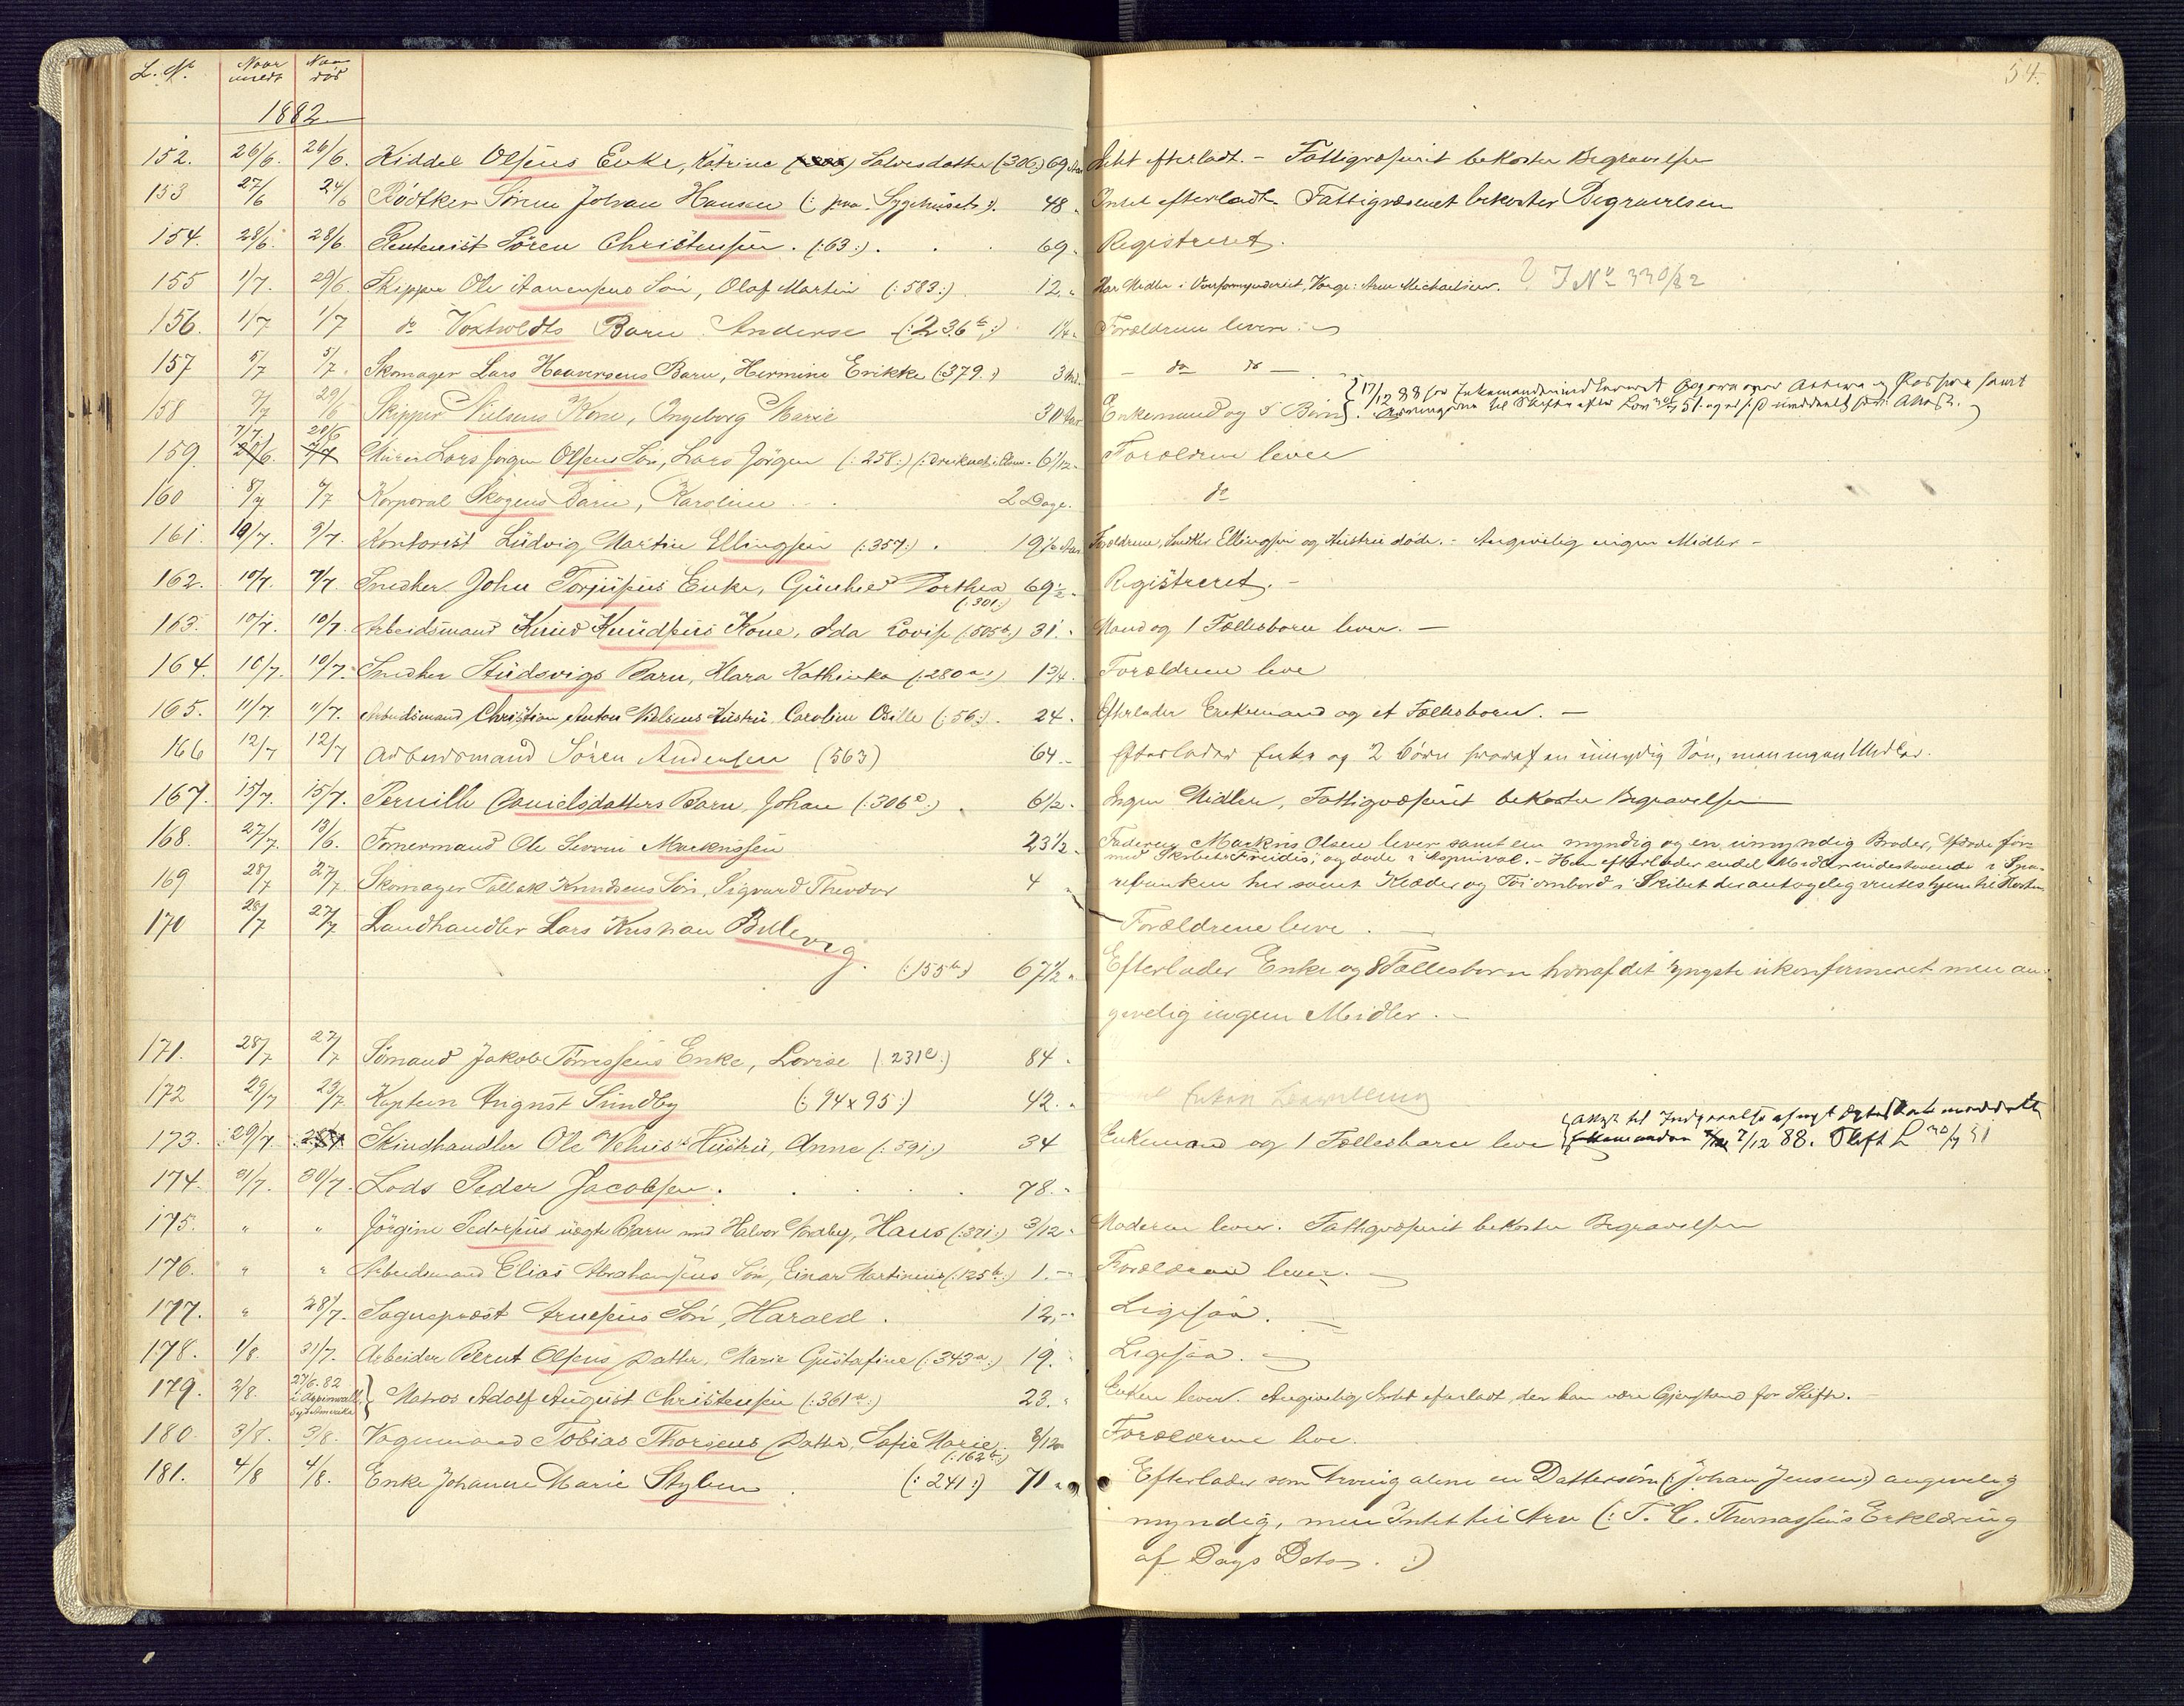 54.
L. No. Naar meldt Naar død
1882
152. 26/6. 26/6. Kiddel Olsens Enke, Katrine Salvesdatter (:306:) 69 Aar Intet efterladt. - Fattigvæsenet bekoster Begravelsen
153 27/6 24/6 Rødtker Sören Johan Hansen (: paa Sygehuset :). 48 " Intet efterladt. Fattigvæsenet bekoster Begravelsen
154. 28/6. 28/6 Rentenist Sören Christensen. (:63:). 69. Registreret.
155 1/7. 29/6 Skipper Ole Aanensens Sön, Olaf Martin (:583:) 12. " Har Midler i Overformynderiet, Værge: Arne Michaelsen. J No 330/82
156. 1/7 1/7 do Voxtvoldts Barn Anderse (:236b:) 1¼ " Forældrene lever
157 5/7 5/7. Skomager Lars Haaversens Barn, Hermine Erikke (379.) 3 Md. - do do -
158 7/7 29/6 Skipper Nielsens Kone, Ingeborg Marie 30 Aar Enkemand og 5 Börn
{17/12 88 for Enkemanden
til Skifte efter Lov 30/7 51.
159. 7/7 28/6 Murer Lars Jörgen Olsens Sön, Lars Jörgen (:258:) 6 1/12 " Forældrene lever
160 8/7 7/7 Korporal Skogens Barn, Karoline 2 Dage. do
161. 10/7. 9/7. Kontorist Ludvig Martin Ellingsen (:357:) . 19 Aar Forældrene, Snedker Ellingsen og Hustru døde. - Angivelig ingen Midler -
162. 10/7. 7/7. Snedker John Torjusens Enke, Gunhild Dorthea 69½ " Registreret. -
(:301:)
163. 10/7. 10/7. Arbeidsmand Knud Knudsens Kone, Ida Lovise (:505b:) 31. " Mand og 1 Fællesbarn lever. -
164. 10/7. 10/7. Snedker Studsvigs Barn, Klara Kathinka (:280a:) 1¾. Forældrene leve
165. 11/7 11/7. Arbeidsmand Christian Anton Nielsens Hustru Caroline Osille (:56:). 24. Efterlader Enkemand og et Fællesbarn. -
166 12/7 12/7 Arbeidsmand Sören Andersen (563) 64. - Efterlader Enke og 2 Börn hvoraf en umyndig Sön, men ingen Midler.
167. 15/7. 15/7. Pernille Danielsdatters Barn, Johan (:306c:) . 6½. Ingen Midler, Fattigvæsenet bekoster Begravelsen
168. 27/7. 13/6. Tømmermand Ole Severin Markussen 23½ " Faderen Markus Olsen lever samt en myndig og en umyndig Broder, Afdøde for
med Skibet Freidig, og døde i Aspinval. - Han efterlader endel Midler indestaaende i Spa-
169 28/7 27/7 Skomager Tallak Knudsens Sön, Sigvard Theodor 4 " rebanken her samt Klæder og Töi ombord i Skibet der antagelig ventes hjem til Høsten
170 28/7 27/7 Landhandler Lars Kristian Bellevig. Forældrene leve. -
(:155b:) 67½ " Efterlader Enke og 8 Fællesbørn hvoraf det yngste ukonfirmeret men an-
givelig ingen Midler. -
171. 28/7 27/7 Sömand Jakob Tørressens Enke, Lovise (231c:) 84 "
172 29/7 29/7 Kaptein August Sundby (:94 x 95:) 42. " Enken Bevilling
173. 29/7. Skindhandler Ole Vehus's Hustru, Anne (:591:) 34 Enkemand og 1 Fællesbarn leve {Attest til Indgaaelse af nyt Ægteskab meddelt
Enkemanden 7/12 88. Skift L 30/7 51
174. 31/7. 30/7. Lods Peder Jacobsen. 78. "
175. " " Jörgine Pedersens uægte Barn med Halvor Nordby, Hans (:321:) 3/12 " Moderen lever. Fattigvæsenet bekoster Begravelsen
176. " " Arbeidsmand Elias Abrahamsens Sön, Einar Martinius (:125b:) 1. - Forældrene lever. -
177. " 28/7. Sognepræst Arnesens Sön, Harald . 12. - Ligesaa. -
178. 1/8. 31/7. Arbeider Bernt Olsens Datter, Marie Gustafine (:343a:) 19. Ligesaa. -
179. 2/8. 27/6. 82 i Aspinwall Sydamerika } Matros Adolf August Christensen (:361a:) 23. " Enken lever. Angivelig Intet efterladt, der kan være Gjenstand for Skifte. -
180. 3/8. 3/8. Vognmand Tobias Thorsens Datter, Sofie Marie, 8/12 Forældrene leve.
(:162b:)
181. 4/8 4/8. Enke Johanne Marie Stylen . (:241:) 71 " Efterlader som Arving alene en Dattersön (:Johan Jensen:) angivelig
myndig, men Intet til Arv (: T. C. Thomassens Erklæring
af Dags Dato. :)